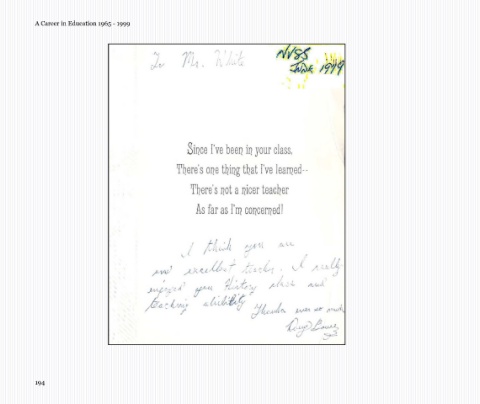 A Career in Education 1965 - 1999
To Mr. White
NVSS
JUNE 1999
Since I've been in your class,
There's one thing that I've learned--
There's not a nicer teacher
As far as I'm concerned!
I think you are
an excellent teacher. I really
enjoyed your History class and
teaching ability
Thanks ever so much
194